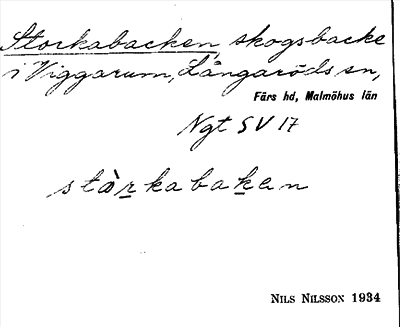 Storkabacken, skogsbacke
i Viggarum, Långaröds sn,
Färs hd, Malmöhus län
Ngt SV 17
stàrkabaken
NILS NILSSON 1934